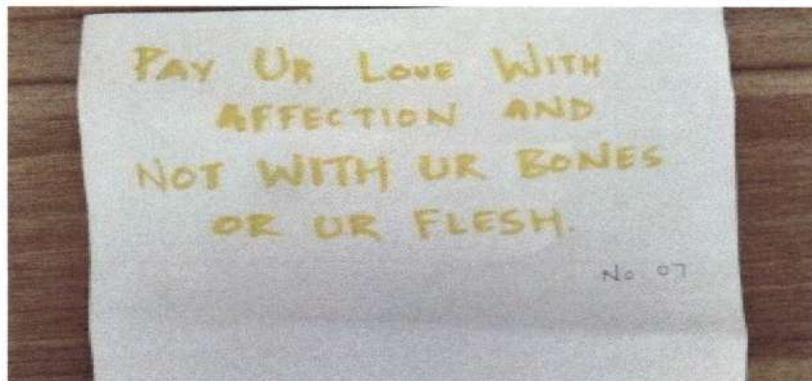 PAY UR LOVE WITH
AFFECTION AND
NOT WITH UR BONES
OR UR FLESH.
No 07